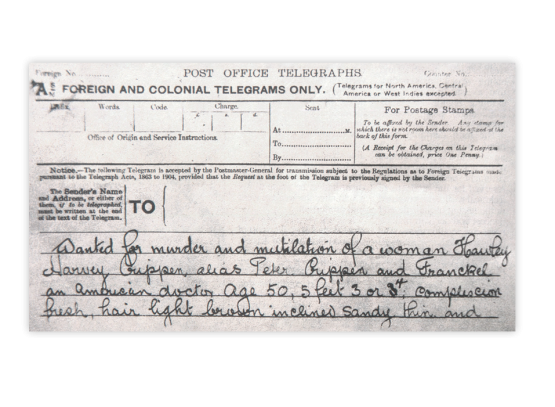 Foreign No. ..........
Counter No.
POST OFFICE TELEGRAPHS
A FOREIGN AND COLONIAL TELEGRAMS ONLY. (Telegrams for North America, Central
America or West Indies excepted)
Words Code Charge Sent For Postage Stamps
To be affixed by the Sender. Any stamp for
which there is not room here should be affixed at the
back of this form.
(A Receipt for the Charges on this Telegram
can be obtained, price One Penny.)
Office of Origin and Service Instructions.
At
To
By
Notice.—The following Telegram is accepted by the Postmaster-General for transmission subject to the Regulations as to Foreign Telegrams made
pursuant to the Telegraph Acts, 1863 to 1904, provided that the Request at the foot of the Telegram is previously signed by the Sender.
The Sender's Name
and Address, or either
of them, if to be telegraphed,
must be written at the end
of the text of the Telegram.
TO
Wanted for murder and mutilation of a woman Hawley
Harvey Crippen, alias Peter Crippen and Franckel
an American doctor age 50, 5 feet 3 or 4, complexion
fresh, hair light brown inclined sandy thin and